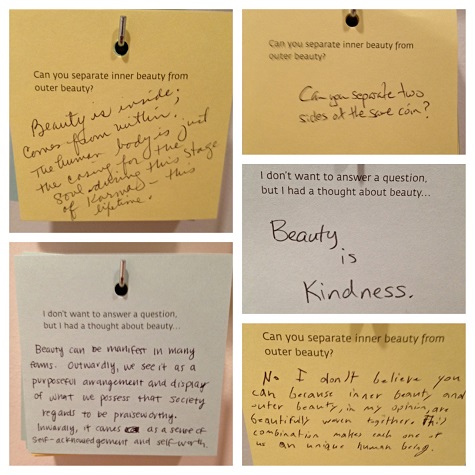 Can you separate inner beauty from
outer beauty?
Beauty is inside;
Comes from within;
The human body is just
the casing for the
Soul during this stage
of Karma – this
lifetime.
Can you separate inner beauty from
outer beauty?
Can you separate two
sides of the same coin?
I don't want to answer a question,
but I had a thought about beauty...
Beauty
is
Kindness.
I don't want to answer a question,
but I had a thought about beauty...
Beauty can be manifest in many
forms. Outwardly, we see it as a
purposeful arrangement and display
of what we possess that society
regards to be praiseworthy.
Inwardly, it comes as a sense of
self-acknowledgement and self-worth.
Can you separate inner beauty from
outer beauty?
No I don't believe you
can because inner beauty and
outer beauty, in my opinion, are
beautifully woven together. This
combination makes each one of
us an unique human being.